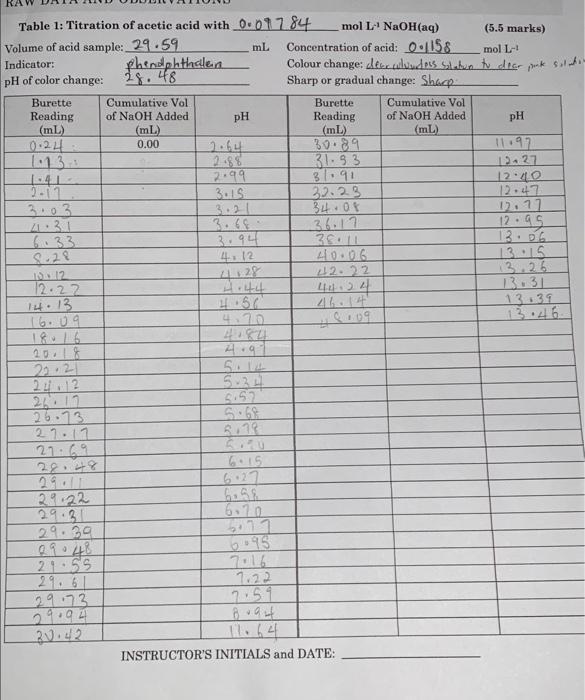 RAW DATA AND OBSERVATIONS
Table 1: Titration of acetic acid with 0.09784 mol L-1 NaOH(aq) (5.5 marks)
Volume of acid sample: 29.59 mL Concentration of acid: 0.1158 mol L-1
Indicator: phenolphthalein Colour change: clear colourless solution to clear pink
pH of color change: 28.48 Sharp or gradual change: Sharp
Burette Reading (mL) Cumulative Vol of NaOH Added (mL) pH Burette Reading (mL) Cumulative Vol of NaOH Added (mL) pH
0.24 0.00 2.64 30.89 11.97
1.13 2.88 31.53 12.27
1.41 2.99 31.91 12.40
2.17 3.15 32.23 12.47
3.03 3.21 34.08 12.77
4.31 3.68 36.17 12.95
6.33 3.94 38.11 13.06
8.28 4.12 40.06 13.15
10.12 4.28 42.22 13.26
12.27 4.44 44.24 13.31
14.13 4.56 46.14 13.39
16.09 4.70 48.09 13.46
18.16 4.84
20.18 4.97
22.21 5.14
24.12 5.34
26.17 5.57
26.73 5.68
27.17 5.78
27.69 5.90
28.48 6.15
29.11 6.27
29.22 6.58
29.31 6.70
29.39 6.77
29.48 6.95
29.55 7.16
29.61 7.22
29.73 7.59
29.94 8.94
30.42 11.64
INSTRUCTOR'S INITIALS and DATE: